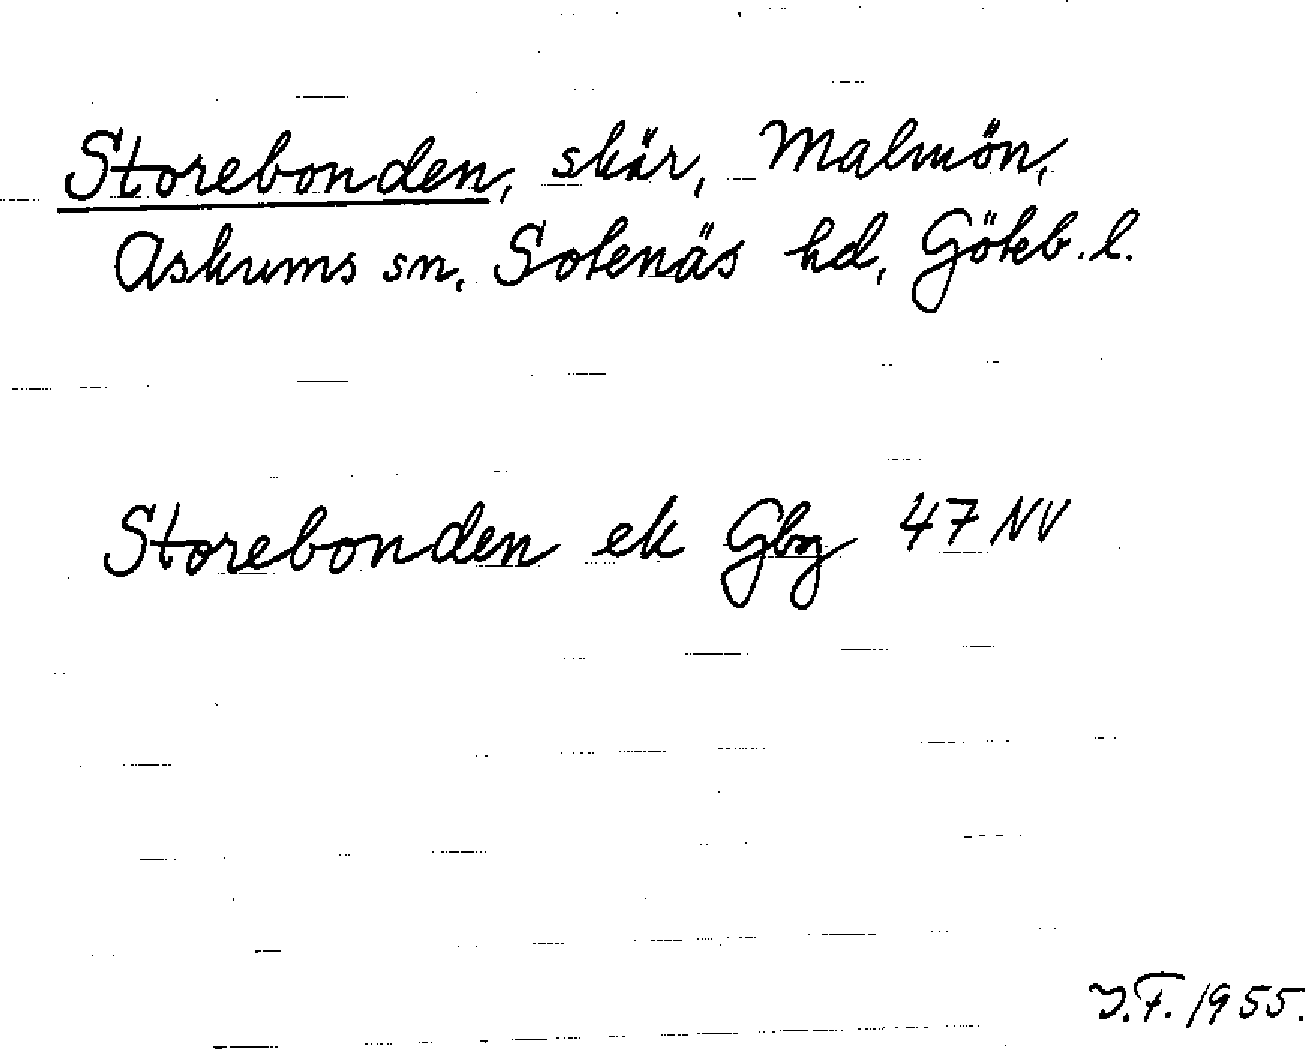 Storebonden, skär, Malmön,
Askums sn, Sotenäs hd, Göteb. l.
Storebonden ek Gbg 47 NV
J.F. 1955.